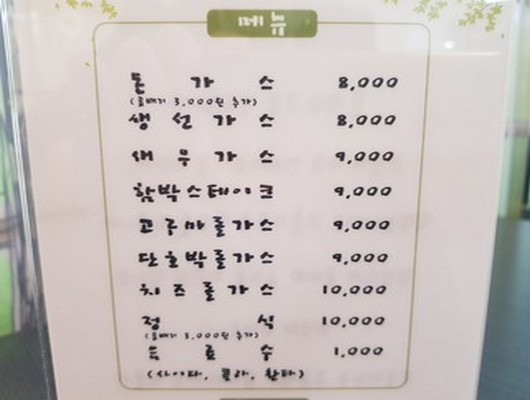 메뉴
돈 가 스 8,000
(곱배기 3,000원 추가)
생 선 가 스 8,000
새 우 가 스 9,000
함박스테이크 9,000
고구마롤가스 9,000
단호박롤가스 9,000
치즈롤가스 10,000
정 식 10,000
(곱배기 3,000원 추가)
음 료 수 1,000
(사이다, 콜라, 환타)